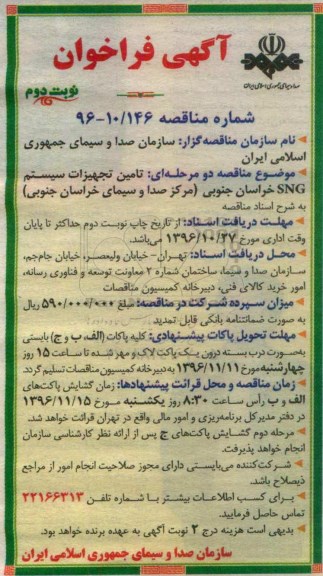 آگهی فراخوان
نوبت دوم
شماره مناقصه ۱۰/۱۴۶-۹۶
نام سازمان مناقصه‌گزار: سازمان صدا و سیمای جمهوری
اسلامی ایران
موضوع مناقصه دو مرحله‌ای: تامین تجهیزات سیستم
SNG خراسان جنوبی (مرکز صدا و سیمای خراسان جنوبی)
به شرح اسناد مناقصه
مهلت دریافت اسناد: از تاریخ چاپ نوبت دوم حداکثر تا پایان
وقت اداری مورخ ۱۳۹۶/۱۰/۲۷ می‌باشد.
محل دریافت اسناد: تهران- خیابان ولیعصر، خیابان جام‌جم،
سازمان صدا و سیما، ساختمان شماره ۲ معاونت توسعه و فناوری رسانه،
امور خرید کالای فنی، دبیرخانه کمیسیون مناقصات
میزان سپرده شرکت در مناقصه: مبلغ ۵۹۰/۰۰۰/۰۰۰ ریال
به صورت ضمانتنامه بانکی قابل تمدید
مهلت تحویل پاکات پیشنهادی: کلیه پاکات (الف، ب و ج) بایستی
به‌صورت درب بسته درون یک پاکت لاک و مهر شده تا ساعت ۱۵ روز
چهارشنبه مورخ ۱۳۹۶/۱۱/۱۱ به دبیرخانه کمیسیون مناقصات تسلیم گردد.
زمان مناقصه و محل قرائت پیشنهادها: زمان گشایش پاکت‌های
الف و ب رأس ساعت ۸:۳۰ روز یکشنبه مورخ ۱۳۹۶/۱۱/۱۵
در دفتر مدیرکل برنامه‌ریزی و امور مالی واقع در تهران قرائت خواهد شد.
مرحله دوم گشایش پاکت‌های ج پس از ارائه نظر کارشناسی سازمان
انجام خواهد پذیرفت.
شرکت‌کننده می‌بایستی دارای مجوز صلاحیت انجام امور از مراجع
ذیصلاح باشد.
برای کسب اطلاعات بیشتر با شماره تلفن ۲۲۱۶۶۳۱۳
تماس حاصل فرمایید.
بدیهی است هزینه درج ۲ نوبت آگهی به عهده برنده خواهد بود.
سازمان صدا و سیمای جمهوری اسلامی ایران